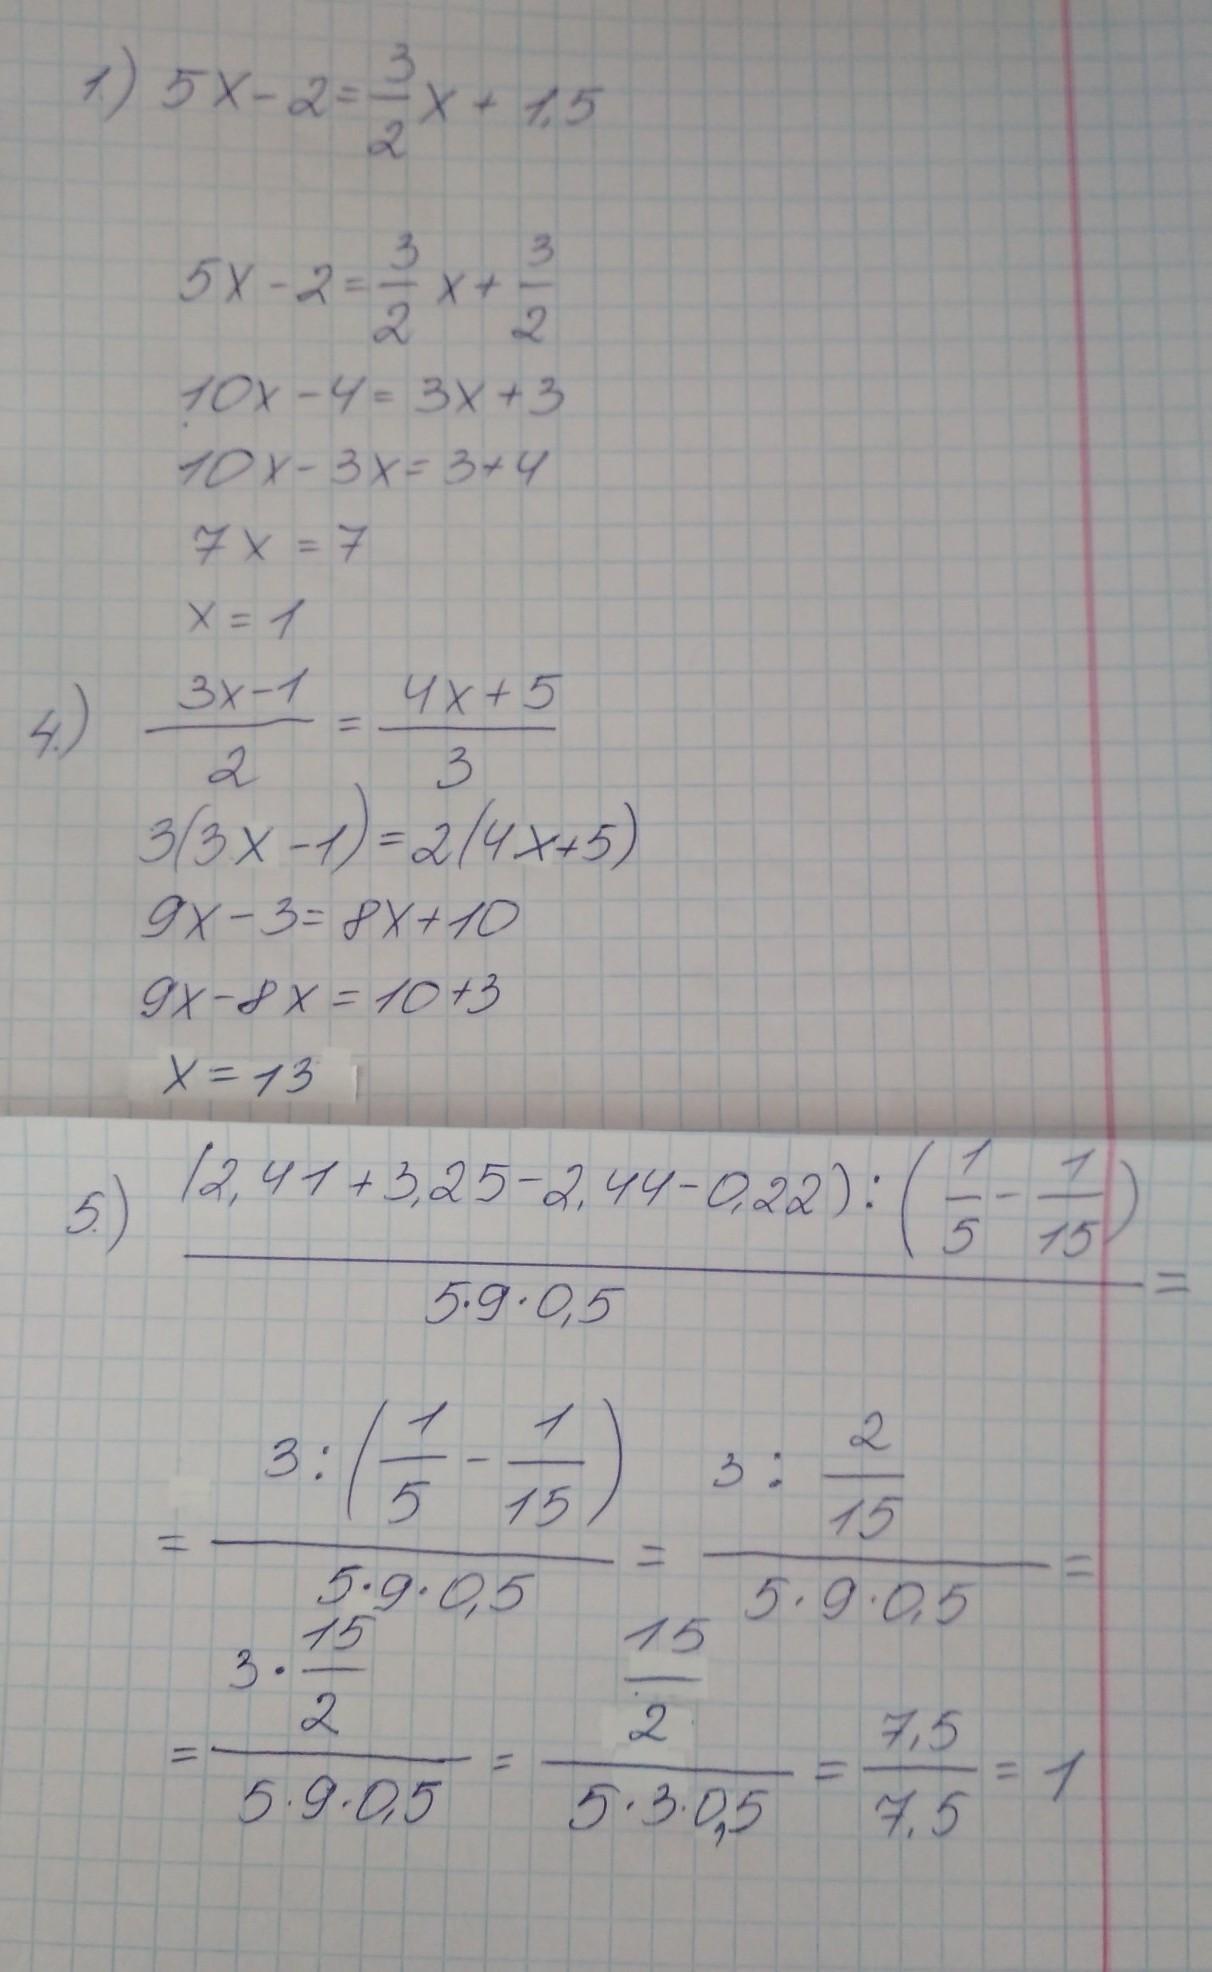 1.) 5x-2=3/2x+1,5
5x-2=3/2x+3/2
10x-4=3x+3
10x-3x=3+4
7x=7
x=1
4.) (3x-1)/2=(4x+5)/3
3(3x-1)=2(4x+5)
9x-3=8x+10
9x-8x=10+3
x=13
5.) ((2,41+3,25-2,44-0,22):(1/5-1/15))/(5·9·0,5)=
=(3:(1/5-1/15))/(5·9·0,5)=(3:2/15)/(5·9·0,5)=
=(3·15/2)/(5·9·0,5)=(15/2)/(5·3·0,5)=7,5/7,5=1